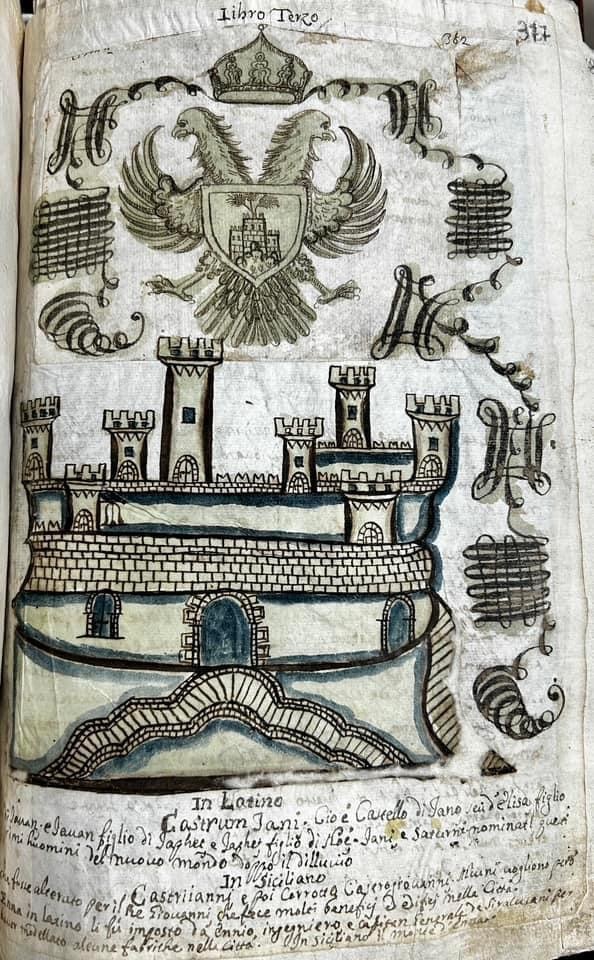 Libro Terzo
362
377
In Latino
Castrum Jani. Cio è Castello di Jano, seù d'Elisa figlio
di Jauan. e Jauan figlio di Japhet e Japhet figlio di Noè. Jani e Saturni nominati queri
primi huomini del nuovo mondo doppo il dilluvio
In Siciliano
Castriianni e poi Corrotto Casrogiovanni. Alcuni vogliono però
che fosse alterato per il Rè Giovanni che fece molti beneficij e difese nella Città.
Enna in latino li fù imposto da Ennio, ingegniero e capitan Generale de Siralusani per
haver modellato alcune fabriche nella Città. In Siciliano il